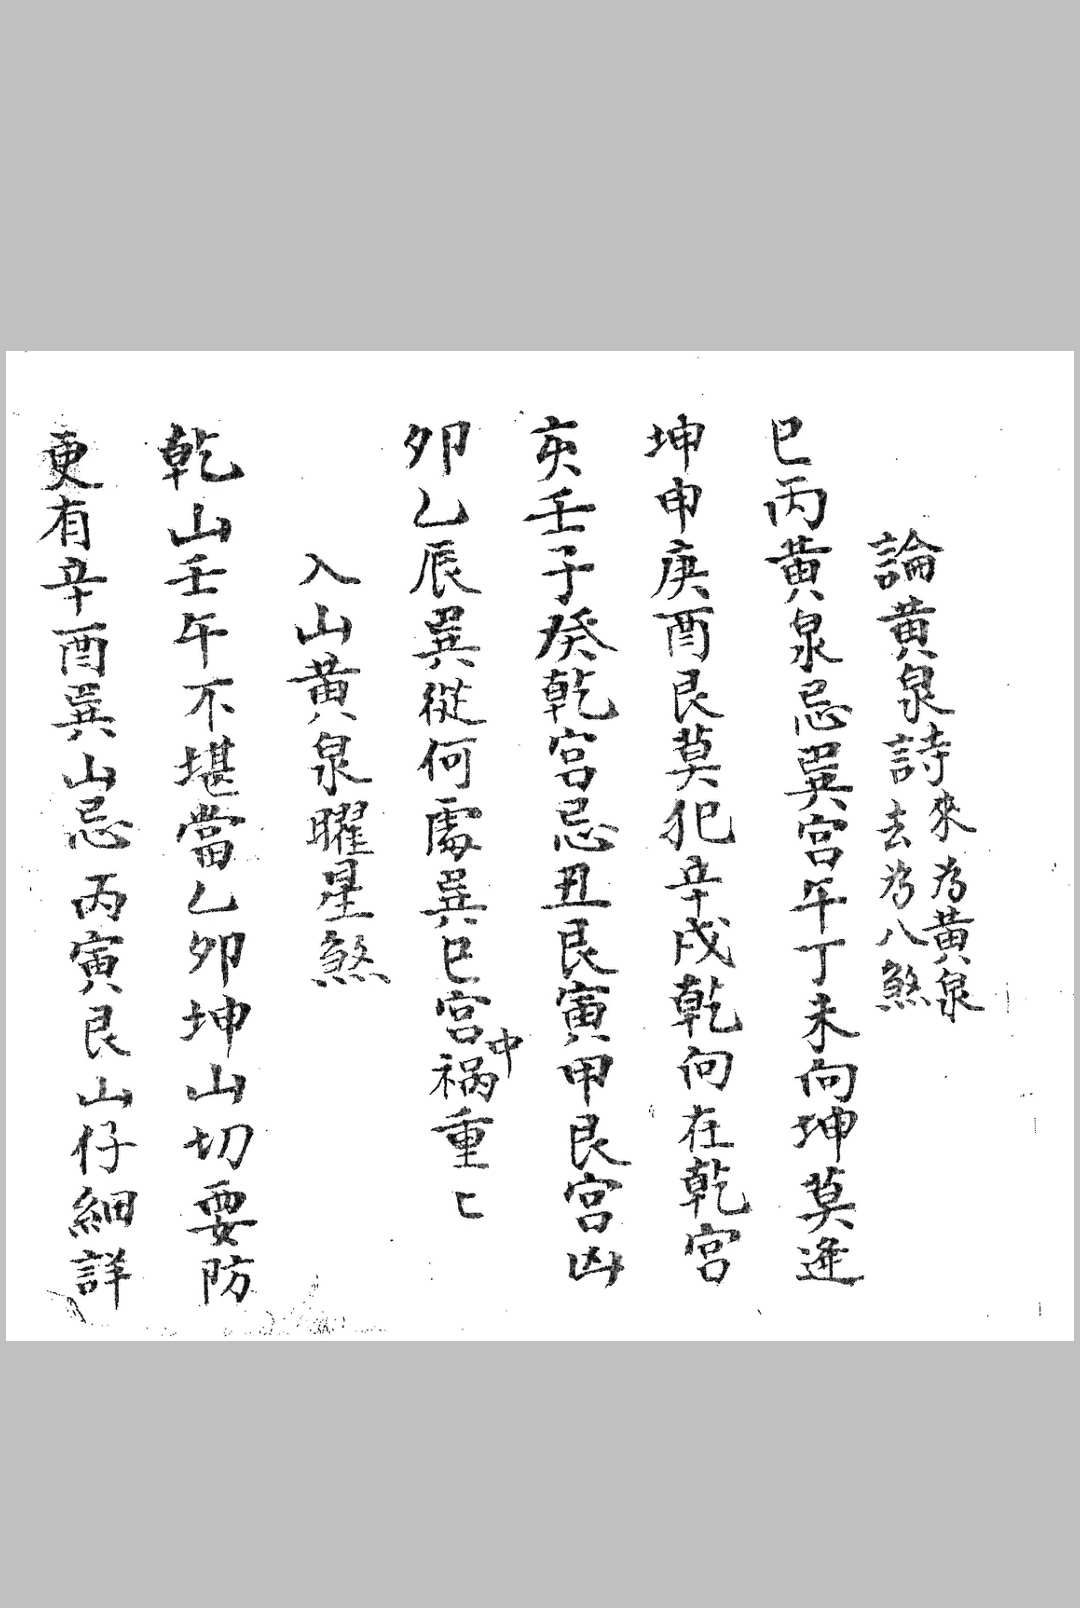 論黃泉詩來為黃泉去為八煞
巳丙黃泉忌巽宮午丁未向坤莫逢
坤申庚酉艮莫犯辛戌乾向在乾宮
亥壬子癸乾宮忌丑艮寅甲艮宮凶
卯乙辰巽從何處巽巳宮中禍重匕
入山黃泉曜星煞
乾山壬午不堪當乙卯坤山切要防
更有辛酉巽山忌丙寅艮山仔細詳